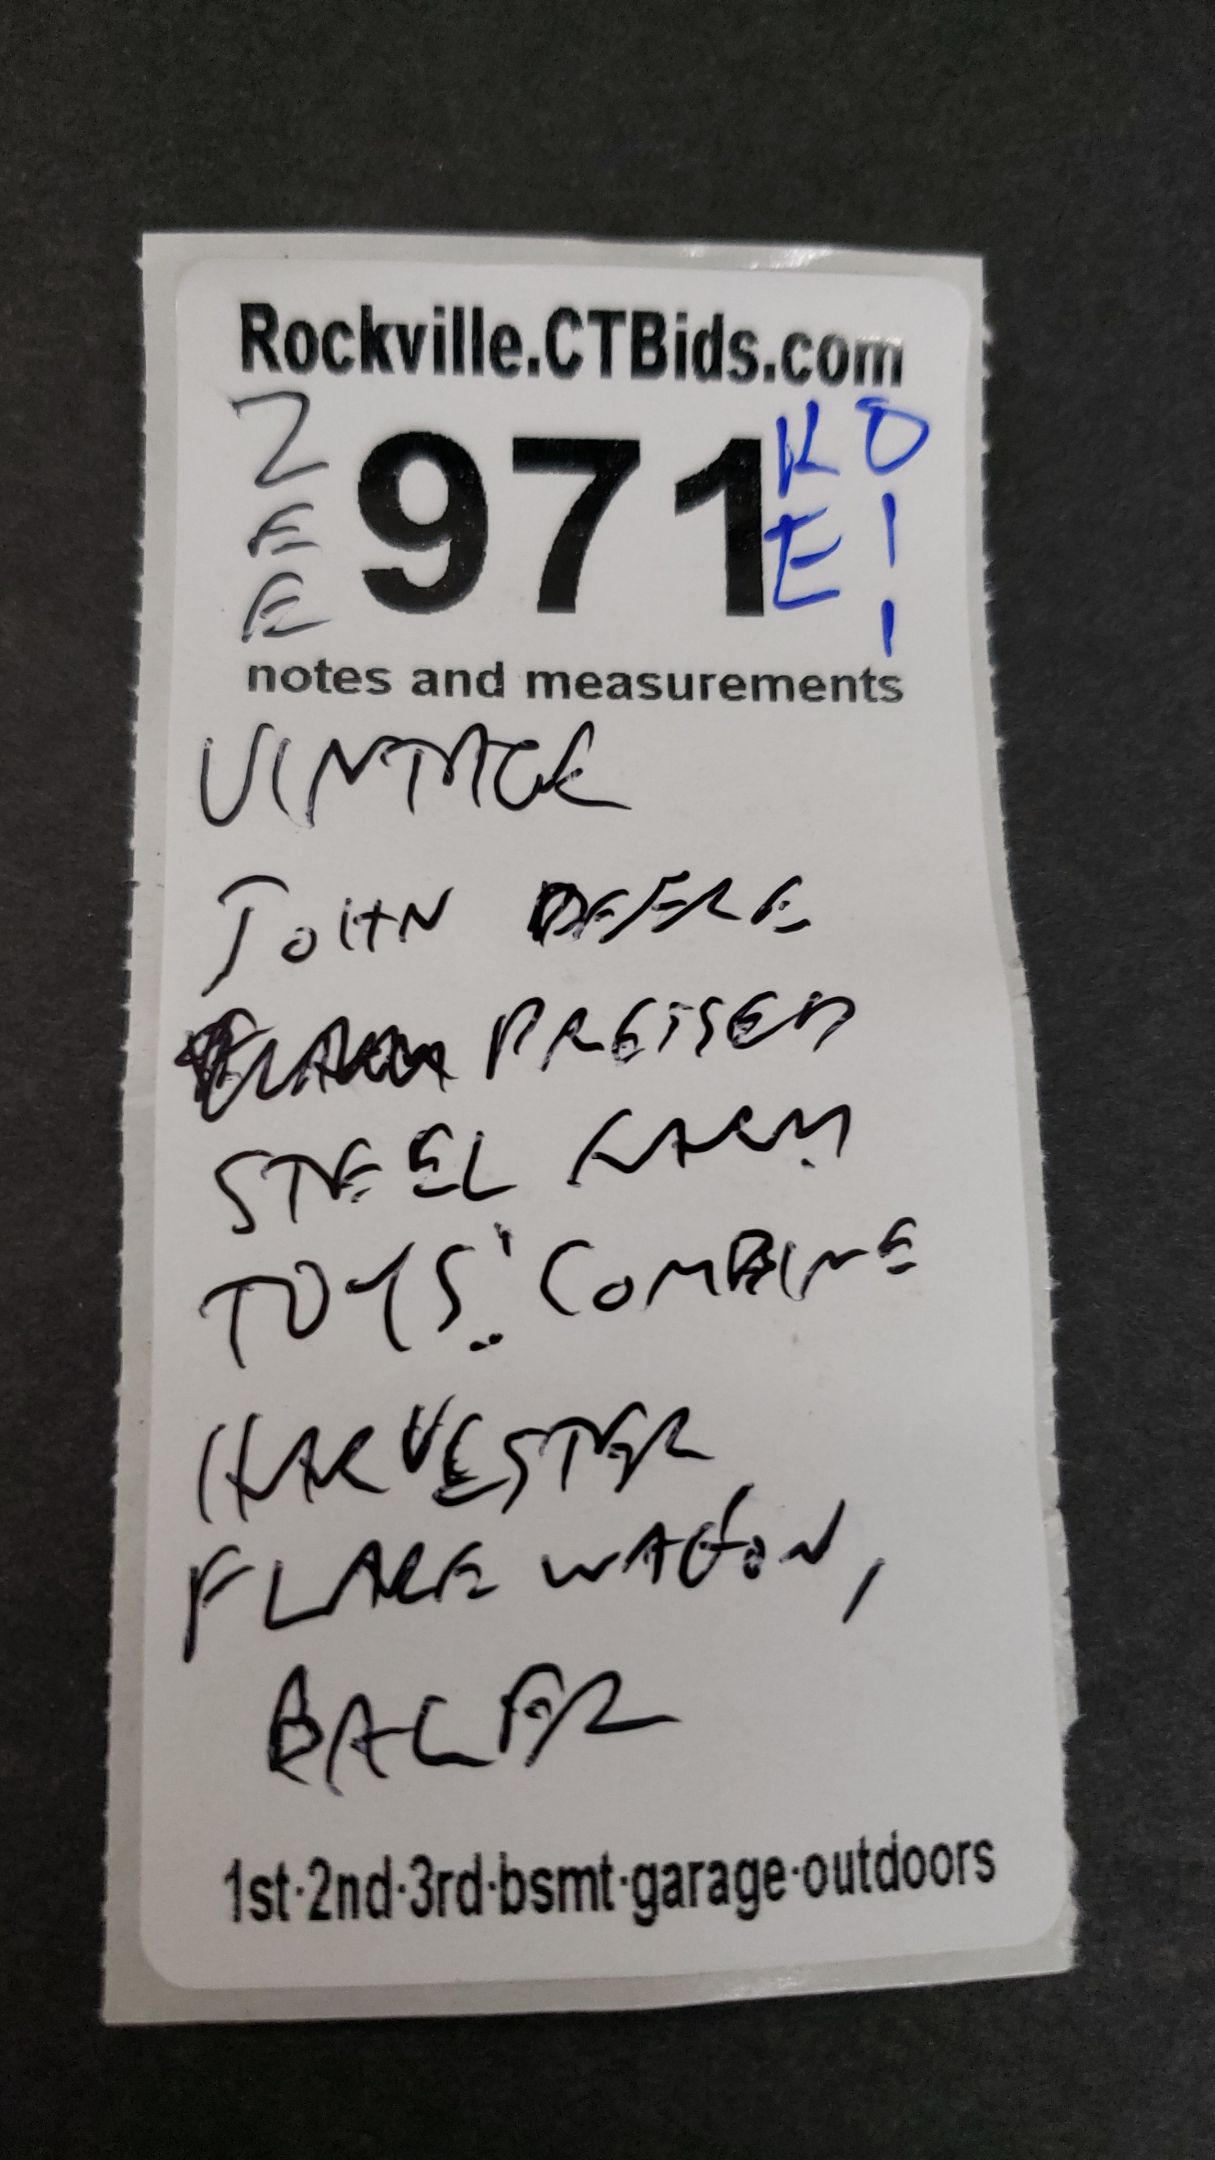 Rockville.CTBids.com
ZEE
971
KE
011
notes and measurements
VINTAGE
JOHN DEERE
PRESSED
STEEL FARM
TOYS: COMBINE
HARVESTER
FLARE WAGON,
BALER
1st·2nd·3rd·bsmt·garage·outdoors